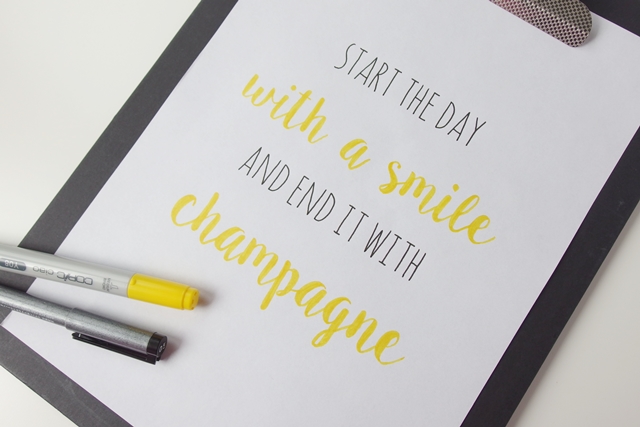 START THE DAY
with a smile
AND END IT WITH
champagne
COPIC ciao